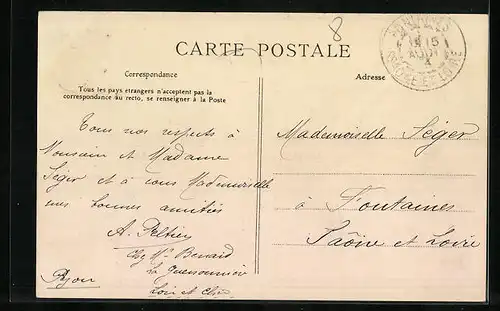 8
CARTE POSTALE
15
SAONE-ET-LOIRE
Correspondance
Adresse
Tous les pays étrangers n'acceptent pas la
correspondance au recto, se renseigner à la Poste
Tous nos respects à
Monsieur et Madame
Séger et à vous Mademoiselle
mes bonnes amitiés
A. Peltier
chez Mr Benard
La
Loir et Cher
Mademoiselle Séger
à Fontaines
Saône et Loire